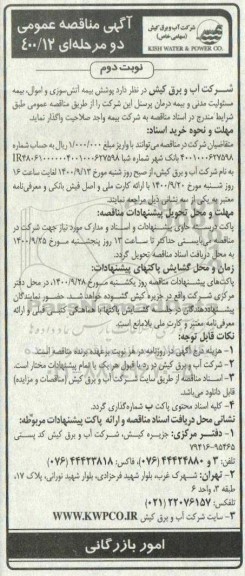 شرکت آب و برق کیش
(سهامی خاص)
KISH WATER & POWER CO.
آگهی مناقصه عمومی
دو مرحله‌ای ۴۰۰/۱۲
نوبت دوم
شرکت آب و برق کیش در نظر دارد پوشش بیمه آتش‌سوزی و اموال، بیمه
مسئولیت مدنی و بیمه درمان پرسنل این شرکت را از طریق مناقصه عمومی طبق
شرایط مندرج در اسناد مناقصه به شرکت بیمه واجد صلاحیت واگذار نماید.
مهلت و نحوه خرید اسناد:
متقاضیان شرکت در مناقصه می‌توانند با واریز مبلغ ۱/۰۰۰/۰۰۰ ریال به حساب شماره
۴۰۰۱۰۰۰۶۲۷۵۹۸ بانک شهر شماره شبا
به نام شرکت آب و برق کیش، از صبح روز شنبه مورخ ۱۴۰۰/۹/۱۳ لغایت ساعت ۱۶
روز شنبه مورخ ۱۴۰۰/۹/۲۰ با ارائه کارت ملی و اصل فیش بانکی و معرفی‌نامه
معتبر به یکی از سه نشانی ذیل مراجعه نمایند.
مهلت و محل تحویل پیشنهادات مناقصه:
پاکت دربسته حاوی پیشنهادات و اسناد و مدارک مورد نیاز جهت شرکت در
مناقصه می‌بایستی حداکثر تا ساعت ۱۳ روز پنجشنبه مورخ ۱۴۰۰/۹/۲۵
به محل دریافت اسناد مناقصه تحویل گردد.
زمان و محل گشایش پاکتهای پیشنهادات:
پاکت‌های پیشنهادات مناقصه روز یکشنبه مورخ ۱۴۰۰/۹/۲۸، در محل دفتر
مرکزی شرکت واقع در جزیره کیش گشوده خواهد شد. حضور نمایندگان
پیشنهاددهندگان در جلسه گشایش پاکتها با هماهنگی کتبی قبلی و ارائه
معرفی‌نامه معتبر و کارت ملی بلامانع است.
نکات قابل توجه:
۱- هزینه درج آگهی در روزنامه در هر نوبت برعهده برنده مناقصه است.
۲- شرکت آب و برق کیش در رد یا قبول هر یک یا تمام پیشنهادات مختار است.
۳- اسناد مناقصه از طریق سایت شرکت آب و برق کیش (مناقصات و مزایده)
قابل دانلود می‌باشد.
۴- کلیه اسناد محتوی پاکت ب شماره‌گذاری گردد.
نشانی محل دریافت اسناد مناقصه و ارائه پاکت پیشنهادات مربوطه:
۱- دفتر مرکزی: جزیره کیش، شرکت آب و برق کیش کد پستی
۷۹۴۱۶-۹۵۴۶۵
تلفن: ۳ و ۴۴۴۲۴۸۸۰ (۰۷۶)، فاکس: ۴۴۴۲۳۸۱۸ (۰۷۶)
۲- تهران: شهرک غرب، بلوار شهید فرحزادی، بلوار شهید نورانی، پلاک ۱۷،
طبقه ۳، واحد ۶
تلفکس: ۲۲۰۷۶۱۵۷ (۰۲۱)
۳- سایت شرکت آب و برق کیش WWW.KWPCO.IR
امور بازرگانی